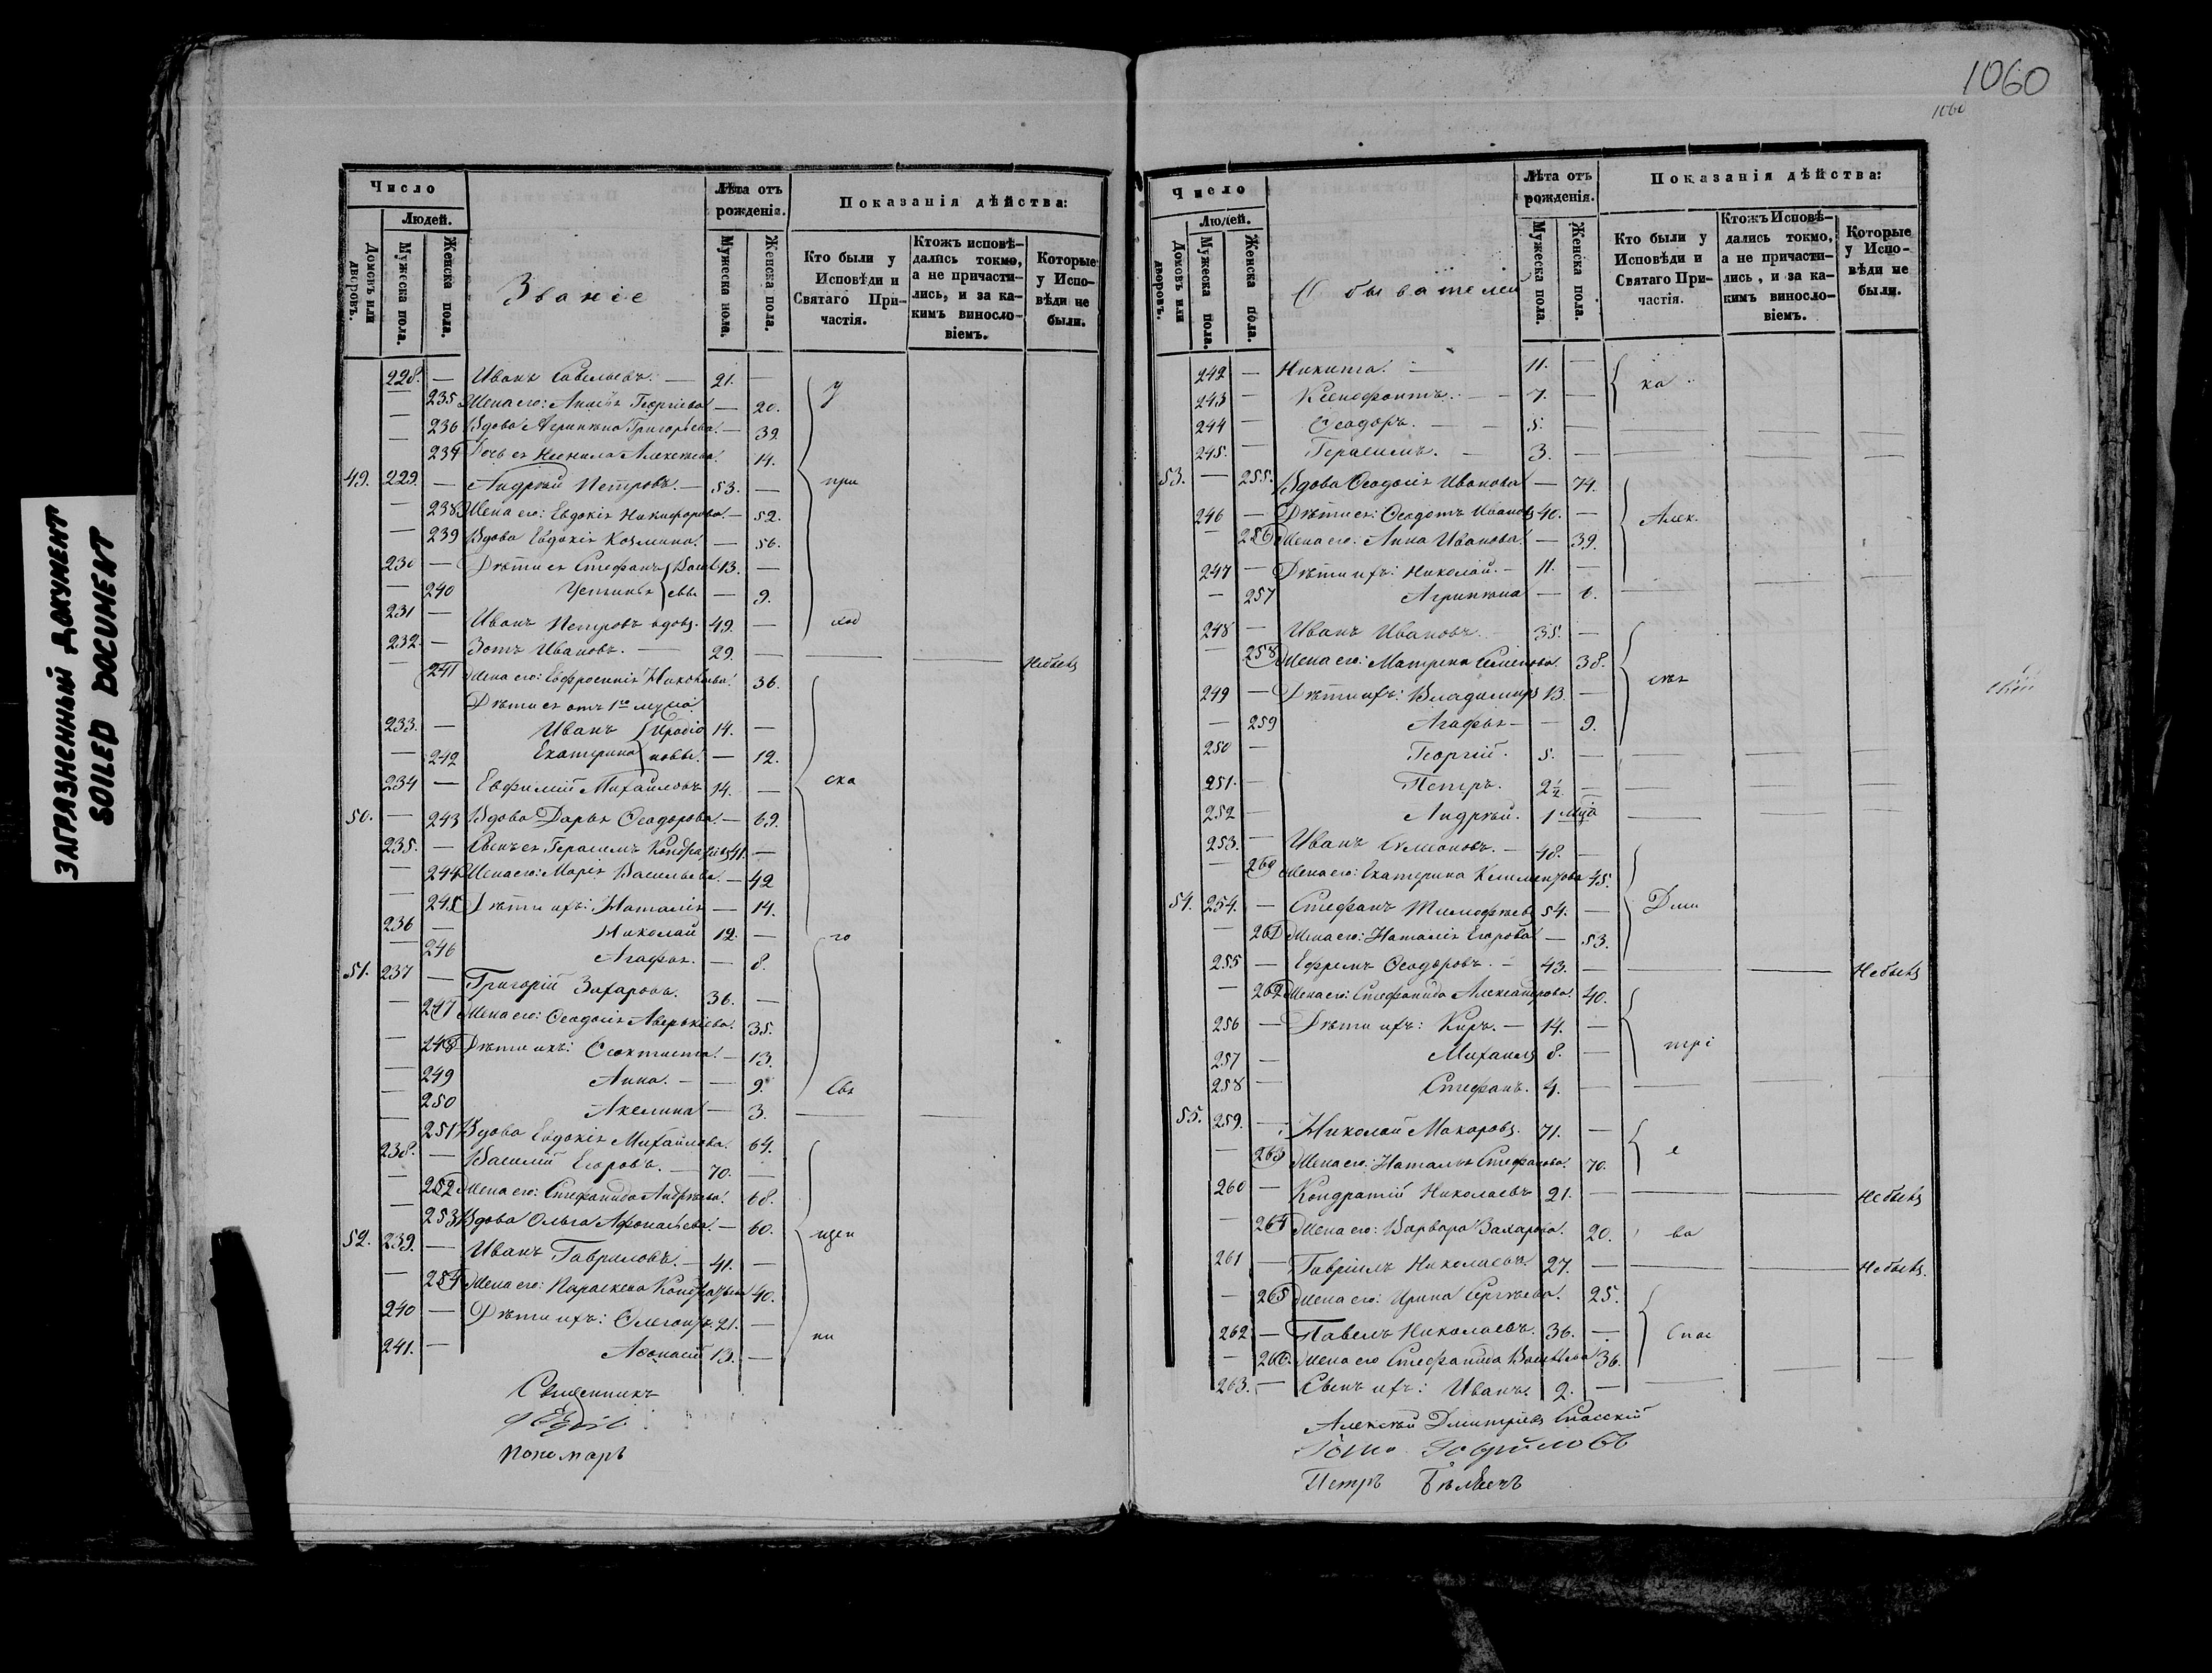 ЗАГРЯЗНЕННЫЙ ДОКУМЕНТ
SOILED DOCUMENT
Число
Людей.
Домовъ или дворовъ.
Мужеска пола.
Женска пола.
Званіе
Лѣта отъ рожденія.
Мужеска пола.
Женска пола.
Показанія дѣйства:
Кто были у Исповѣди и Святаго Причастія.
Ктожъ исповѣдались токмо, а не причастились, и за какимъ винословіемъ.
Которые у Исповѣди не были.
228. — Иванъ Савельевъ. — 21. — у
— 235 Жена его: Георгіева — 20.
— 236 Вдова Агрипина Григорьева. — 39.
— 237 Дочь ея Алексѣева. 14.
49. 229. — Андрей Петровъ. — 53. — при
— 238 Жена его: Евдокія Никифорова. — 52.
— 239 Вдова Евдокія Козмина. — 56.
230 — Дѣти ея Стефанъ 13. —
— 240 Устинья евы — 9.
231 — Иванъ Петровъ вдовъ. 49. — ход
232. — Зотъ Ивановъ. — 29. — — — Небылъ
— 241 Жена его: Евфросинія 36.
Дѣти ея отъ 1го мужа
233. — Иванъ 14. —
— 242 Екатерина — 12.
234 — Евфимій Михайловъ 14. — ска
50. — 243 Вдова Дарья Ѳеодорова. — 69.
235. — Сынъ ея Герасимъ 41. —
— 244 Жена его: Марія Васильева. — 42
— 245 Дѣти ихъ: Наталія — 14.
236 — Николай 12. — го
— 246 Агафья. — 8.
51. 237 — Григорій Захаровъ. 36. —
— 247 Жена его: Ѳеодосія Аверкіева. 35.
— 248 Дѣти ихъ: Ѳеоктиста. — 13.
— 249 Анна. — — 9. Свя
— 250 Акелина — 3. — —
— 251 Вдова Евдокія Михайлова. 64.
238. — Василій Егоровъ. — 70. —
— 252 Жена его: Стефанида Андрѣева. 68.
— 253 Вдова Ольга Афонасьева. — 60. щен
52. 239. — Иванъ Гавриловъ. — 41. —
— 254 Жена его: Параскева 40.
240 — Дѣти ихъ: 21. —
241. — Аѳонасій 13. — ни
Священникъ
Пономарь
1060
1060
Число
Людей.
Домовъ или дворовъ.
Мужеска пола.
Женска пола.
Обывателей
Лѣта отъ рожденія.
Мужеска пола.
Женска пола.
Показанія дѣйства:
Кто были у Исповѣди и Святаго Причастія.
Ктожъ Исповѣдались токмо, а не причастились, и за какимъ винословіемъ.
Которые у Исповѣди не были.
242 — Никита. — 11. — ка
243 — Ксенофонтъ. — 7. —
244 — Ѳеодоръ. — 5. — — — —
245. — Герасимъ. — 3. — — — —
53. — 255. Вдова Ѳеодосія Иванова — 74.
246 — Дѣти ея: Ѳеодотъ Ивановъ 40. — Алек.
— 256 Жена его: Анна Иванова. — 39.
247 — Дѣти ихъ: Николай. — 11. —
— 257 Агрипина — 6. — — —
248 — Иванъ Ивановъ. 35. —
— 258 Жена его: Матрена Семенова. 38.
249 — Дѣти ихъ: Владимиръ 13. — сѣй
— 259 Агафья — — 9.
250 — Георгій. 5. — — — —
251. — Петръ. 2½. — — — —
252 — Андрей. 1 — — —
253. — Иванъ Симеоновъ. — 48. —
— 260 Жена его: Екатерина Климентова 45.
54. 254. — Стефанъ Тимофѣевъ 54. — Дми
— 261 Жена его: Наталія Егорова — 53.
255 — Ефремъ Ѳеодоровъ. — 43. — — — Небылъ
— 262 Жена его: Стефанида Александрова. 40.
256 — Дѣти ихъ: Киръ. — 14. — трі
257 — Михаилъ 8. —
258 — Стефанъ. 4. — — — —
55. 259. — Николай Макаровъ. 71. — е
— 263 Жена его: Наталья Стефанова. 70.
260 — Кондратій Николаевъ 21. — — — Небылъ
— 264 Жена его: Варвара Захарова. 20. въ
261 — Гавріилъ Николаевъ. 27. — — — Небылъ.
— 265 Жена его: Ирина Сергѣева. 25.
262 — Павелъ Николаевъ. 36. — Спас
— 266. Жена его Стефанида 36.
263. — Сынъ ихъ: Иванъ. 2. — — — —
Алексѣй Дмитріевъ Спасскій
Петръ